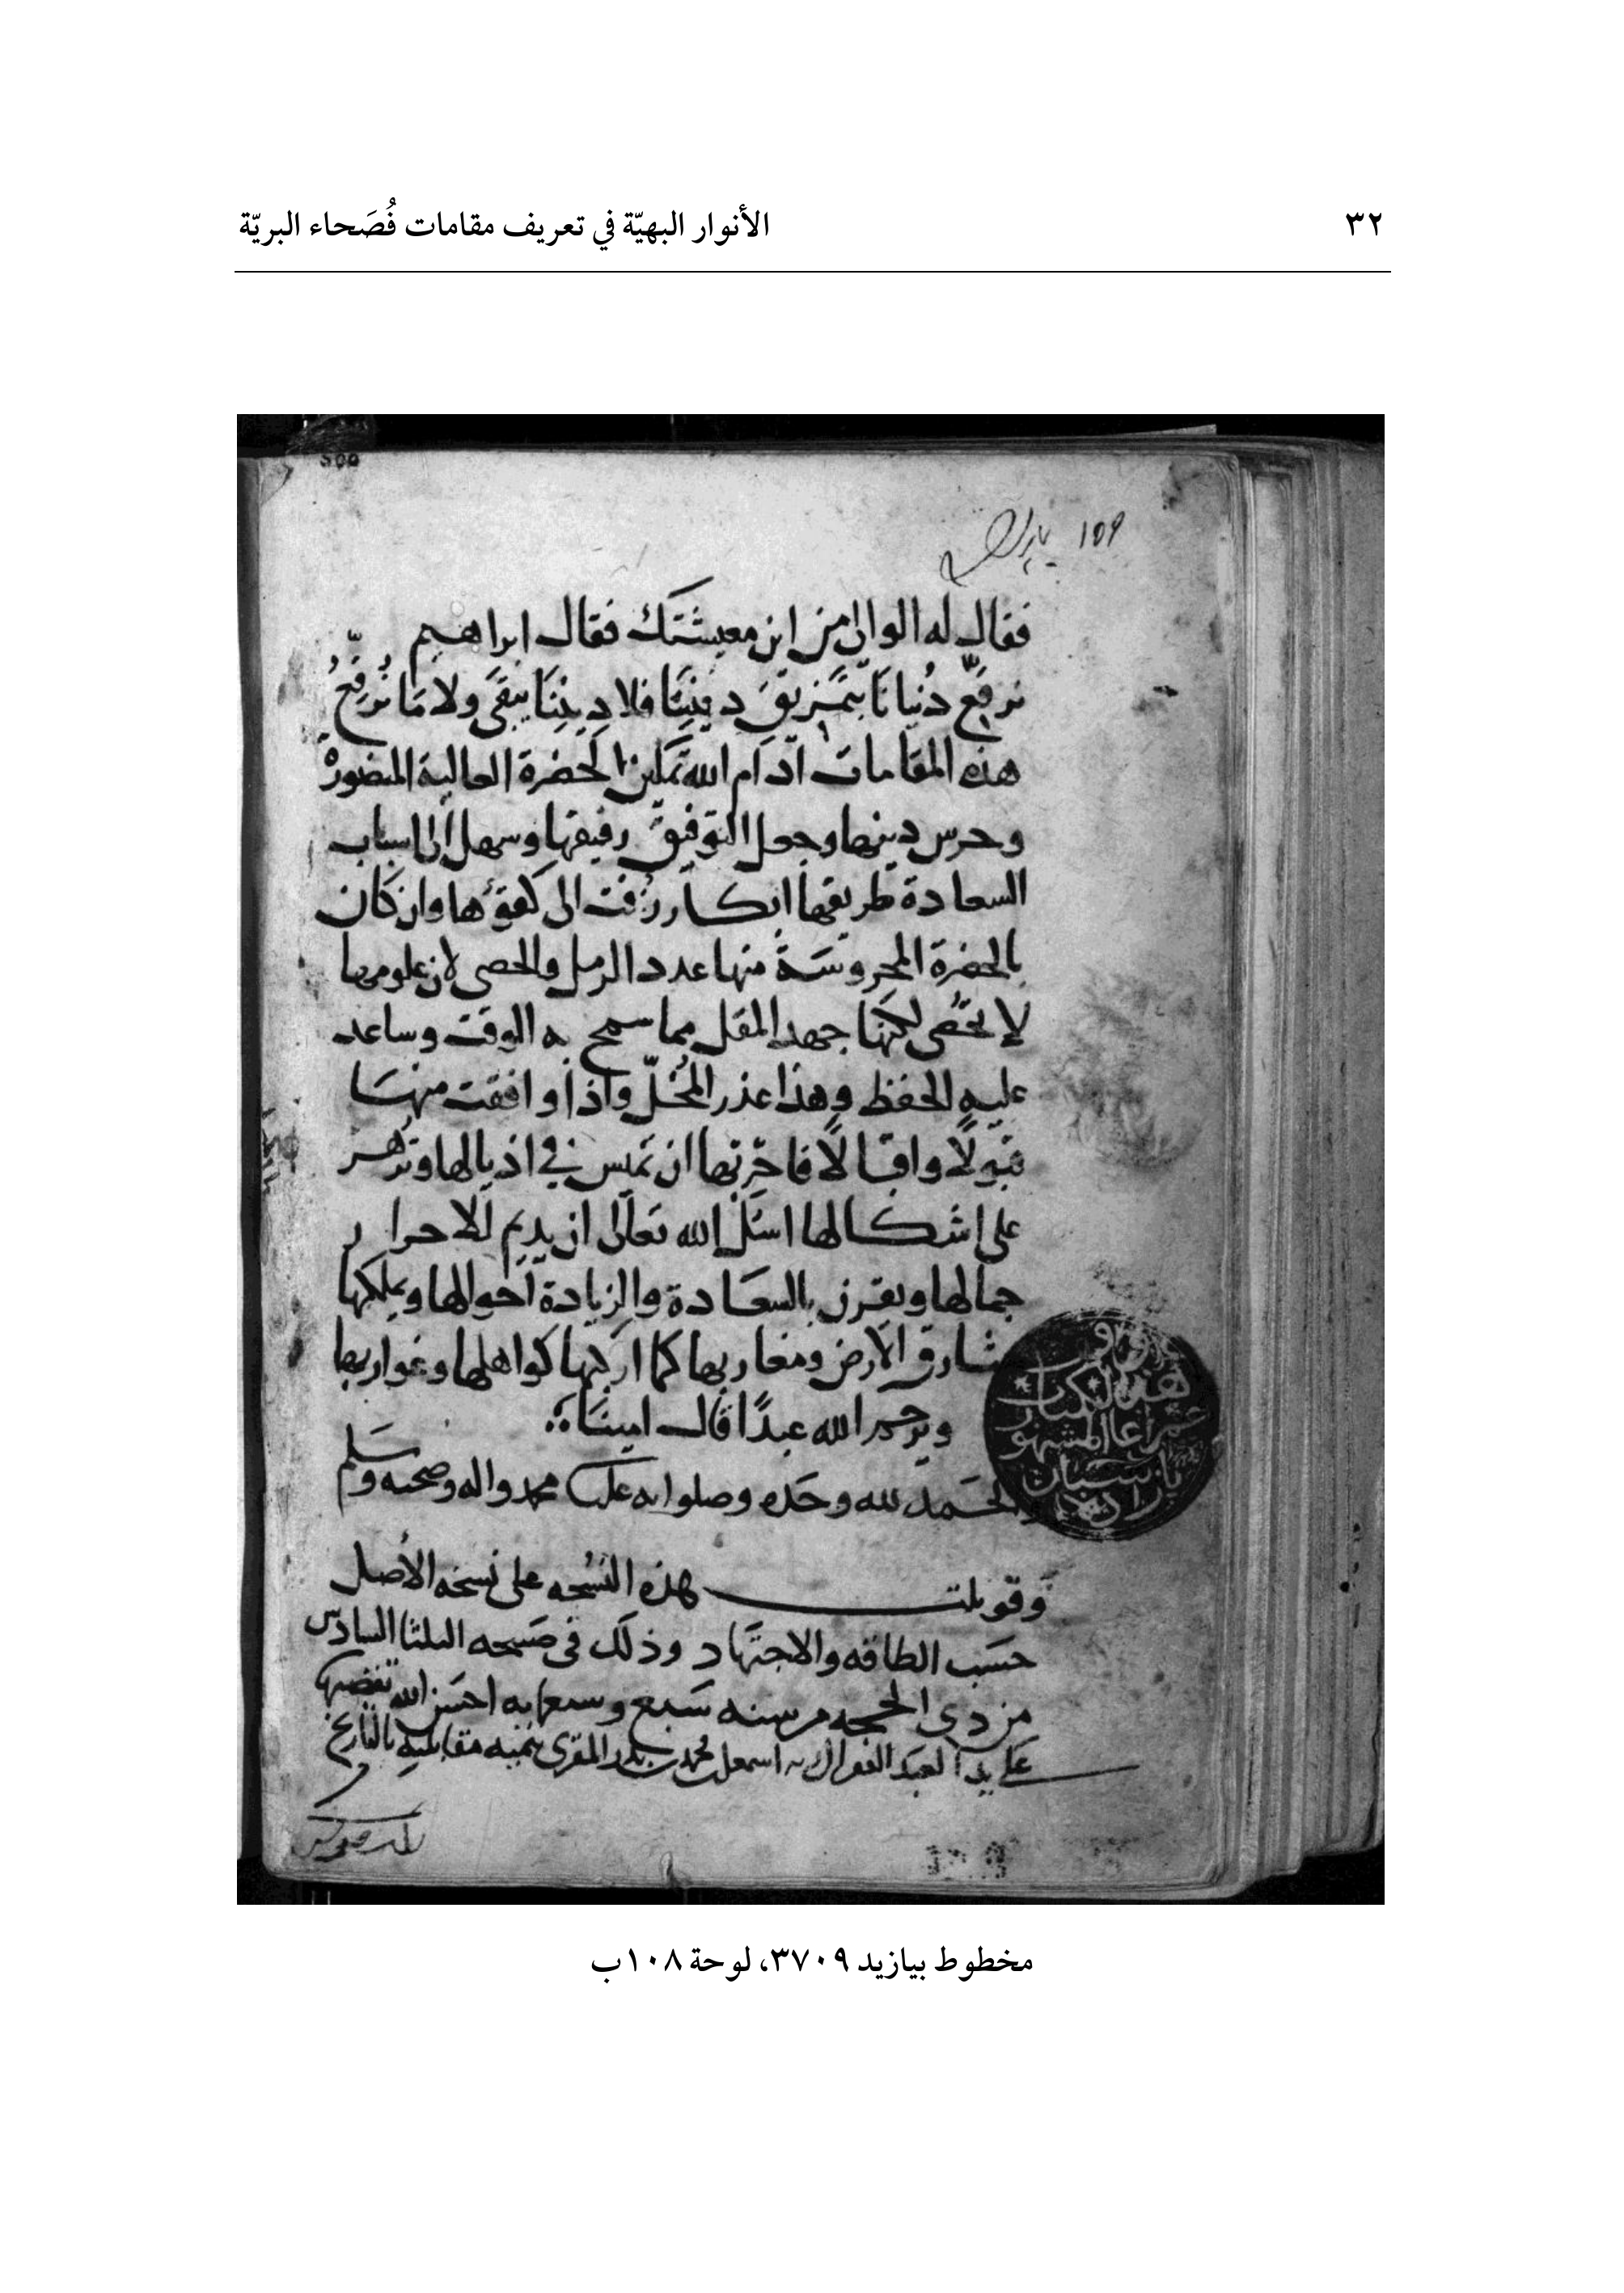 ٣٢
الأنوار البهيّة في تعريف مقامات فُصَحاء البريّة
109
فقال له الوالي من اين معيشتك فقال ابراهيم
نرقّع دُنيانَا بتمزيق دِينِنَا فلا دِينُنَا يبقَى ولا مَا نُرقّعُ
هذه المقامات ادام الله تمكين الحضرة العالية المنصورة
وحرس دينها وجعل التوفيق رفيقها وسهل الى اسباب
السعادة طريقها ابكار زفت الى كفؤها وان كان
بالحضرة المحروسَة منها عدد الرمل والحصى لان علومها
لا تحُصى لكنها جهد المقل مما سمح به الوقت وساعد
عليه الحفظ وهذا عذر المُخلّ واذا وافقت منهَا
قبولًا واقبالًا فاحْرِ بها ان تميس في اذيالها وتزهر
على اشكالها اسَئل الله تعَالى ان يديم للاحرار
جمالها ويقرن بالسعَادة والزيادة احوالها ويملكها
مشارق الارض ومغاربها كما اركبها كواهلها وغواربها
ويرحم الله عبدًا قال امينَا
والحَمد لله وحَده وصلواته على محمد واله وصحبه وسَلم
وقوبلت هذه النسُخه على نسخه الأصل
حسَب الطاقه والاجتهَاد وذلَك في صَبيحه الثلثا السادس
من ذي الحجه من سنه سَبع وسبعمايه احسَن الله تقضيها
عَلى يد العَبد الفقير الى الله اسمعيل بن محمد المقرى
هذا الكتاب
مخطوط بيازيد ٣٧٠٩، لوحة ١٠٨ب